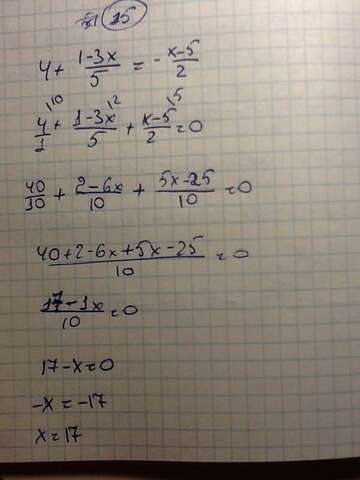 15
4 + (1-3x)/5 = - (x-5)/2
4/1 \10 + (1-3x)/5 \2 + (x-5)/2 \5 = 0
40/10 + (2-6x)/10 + (5x-25)/10 = 0
(40+2-6x+5x-25)/10 = 0
(17-1x)/10 = 0
17-x=0
-x = -17
x=17